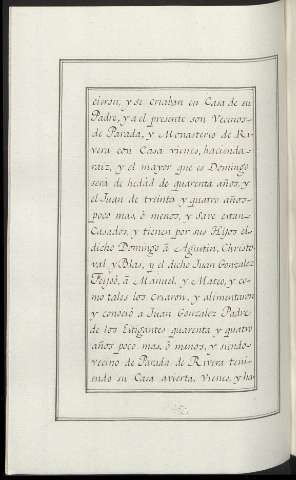 cieron, y se criaban en Casa de su
Padre, y a el presente son Vecinos
de Parada, y Monasterio de Ri-
vera con Casa vienes, hacienda
raiz, y el mayor que es Domingo
sera de hedad de quarenta años, y
el Juan de treinta y quatro años
poco mas, ô menos, y save estan
Casados, y tienen por sus Hijos el
dicho Domingo â Agustin, Christo-
val y Blas, y el dicho Juan Gonzalez
Feijoó, â Manuel y Mateo, y co-
mo tales los Criaron, y alimentaron
y conoció a Juan Gonzalez Padre
de los Litigantes quarenta y quatro
años poco mas, ô menos, y siendo
vecino de Parada de Rivera teni-
endo su Casa avierta, Vienes, y ha-